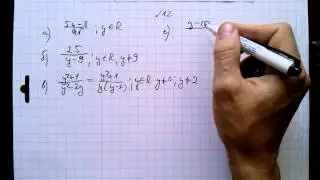 №12
а) (5y-8)/11 ; y∈R
г) y-15
б) 25/(y-9) ; y∈R, y≠9
в) (y²+1)/(y²-2y) = (y²+1)/(y(y-2)) ; y∈R y≠0; y≠2